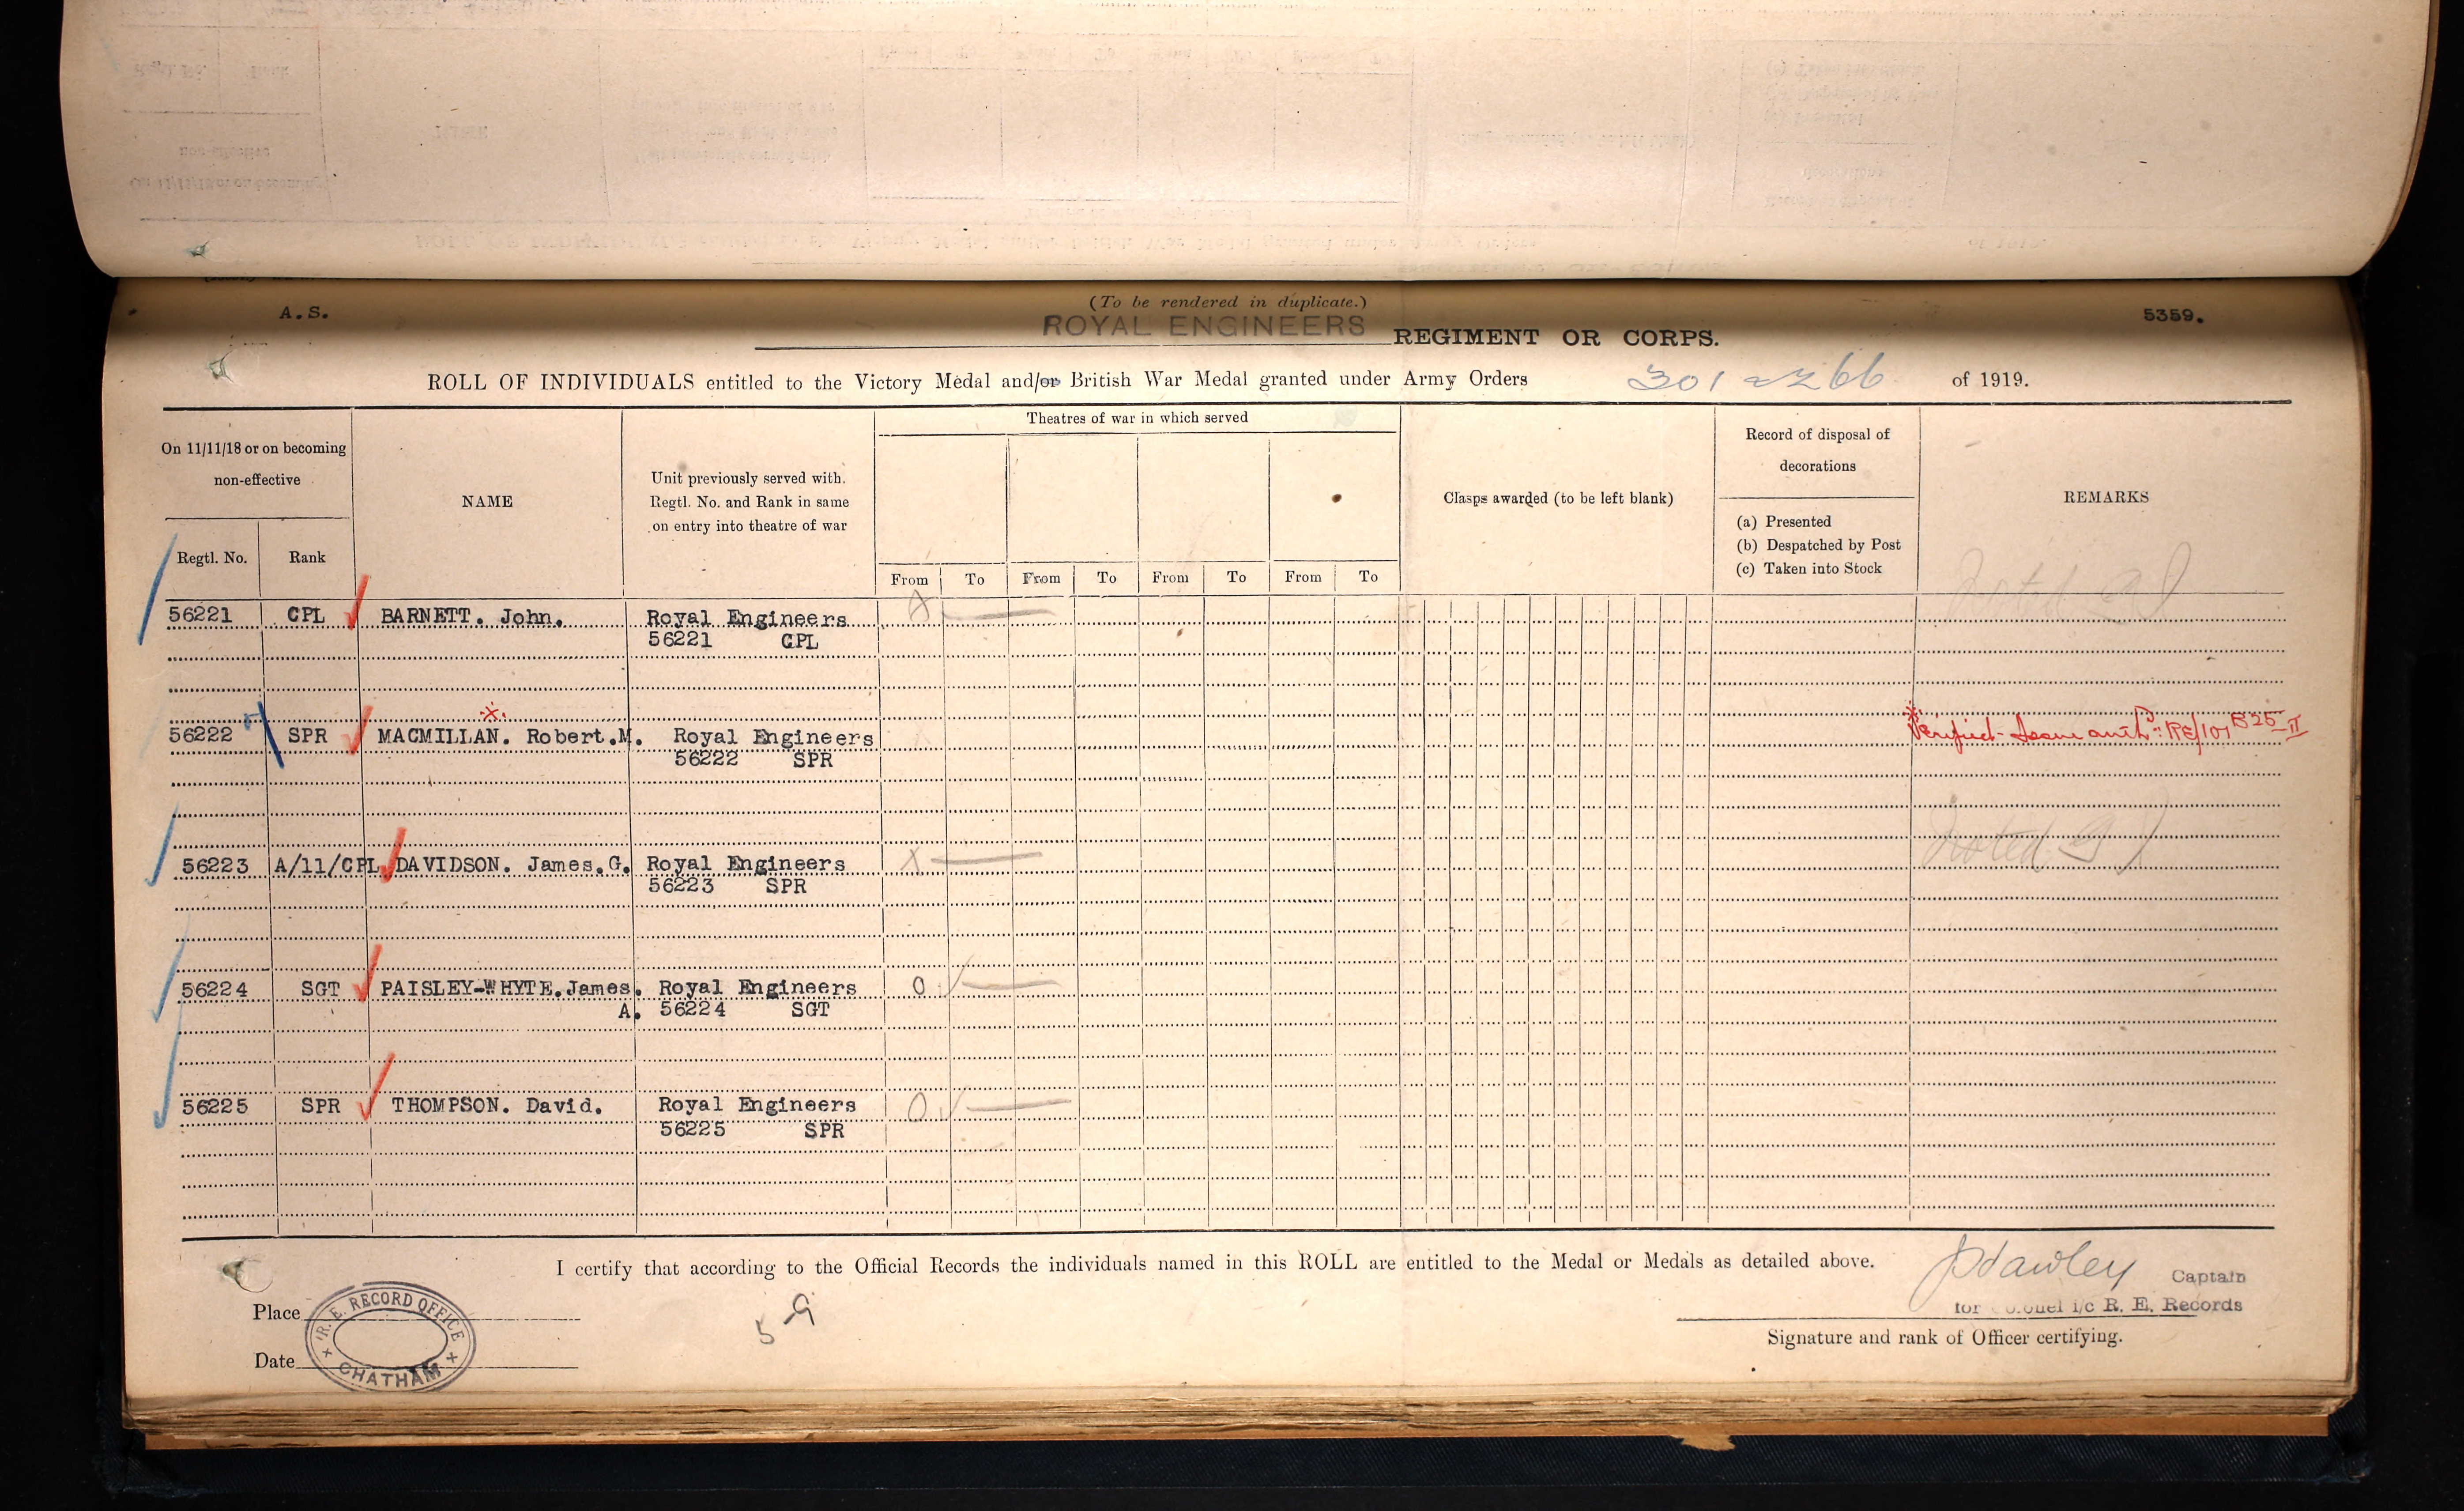 A. S.
(To be rendered in duplicate.)
5359.
ROYAL ENGINEERS REGIMENT OR CORPS.
ROLL OF INDIVIDUALS entitled to the Victory Medal and/or British War Medal granted under Army Orders 301 & 266 of 1919.
On 11/11/18 or on becoming non-effective
Regtl. No.
Rank
NAME
Unit previously served with.
Regtl. No. and Rank in same
on entry into theatre of war
Theatres of war in which served
From To From To From To From To
Clasps awarded (to be left blank)
Record of disposal of
decorations
(a) Presented
(b) Despatched by Post
(c) Taken into Stock
REMARKS
56221 CPL BARNETT. John. Royal Engineers X Noted
56221 CPL
56222 SPR MACMILLAN. Robert.M. Royal Engineers X Verified - Issue auth: RE/101 B25 II
56222 SPR
56223 A/11/CPL DAVIDSON. James.G. Royal Engineers X Noted
56223 SPR
56224 SGT PAISLEY-WHYTE.James. Royal Engineers O
A. 56224 SGT
56225 SPR THOMPSON. David. Royal Engineers O
56225 SPR
I certify that according to the Official Records the individuals named in this ROLL are entitled to the Medal or Medals as detailed above.
Hawley Captain
for Colonel i/c R. E. Records
Signature and rank of Officer certifying.
Place
Date
R. E. RECORD OFFICE
CHATHAM
5-9